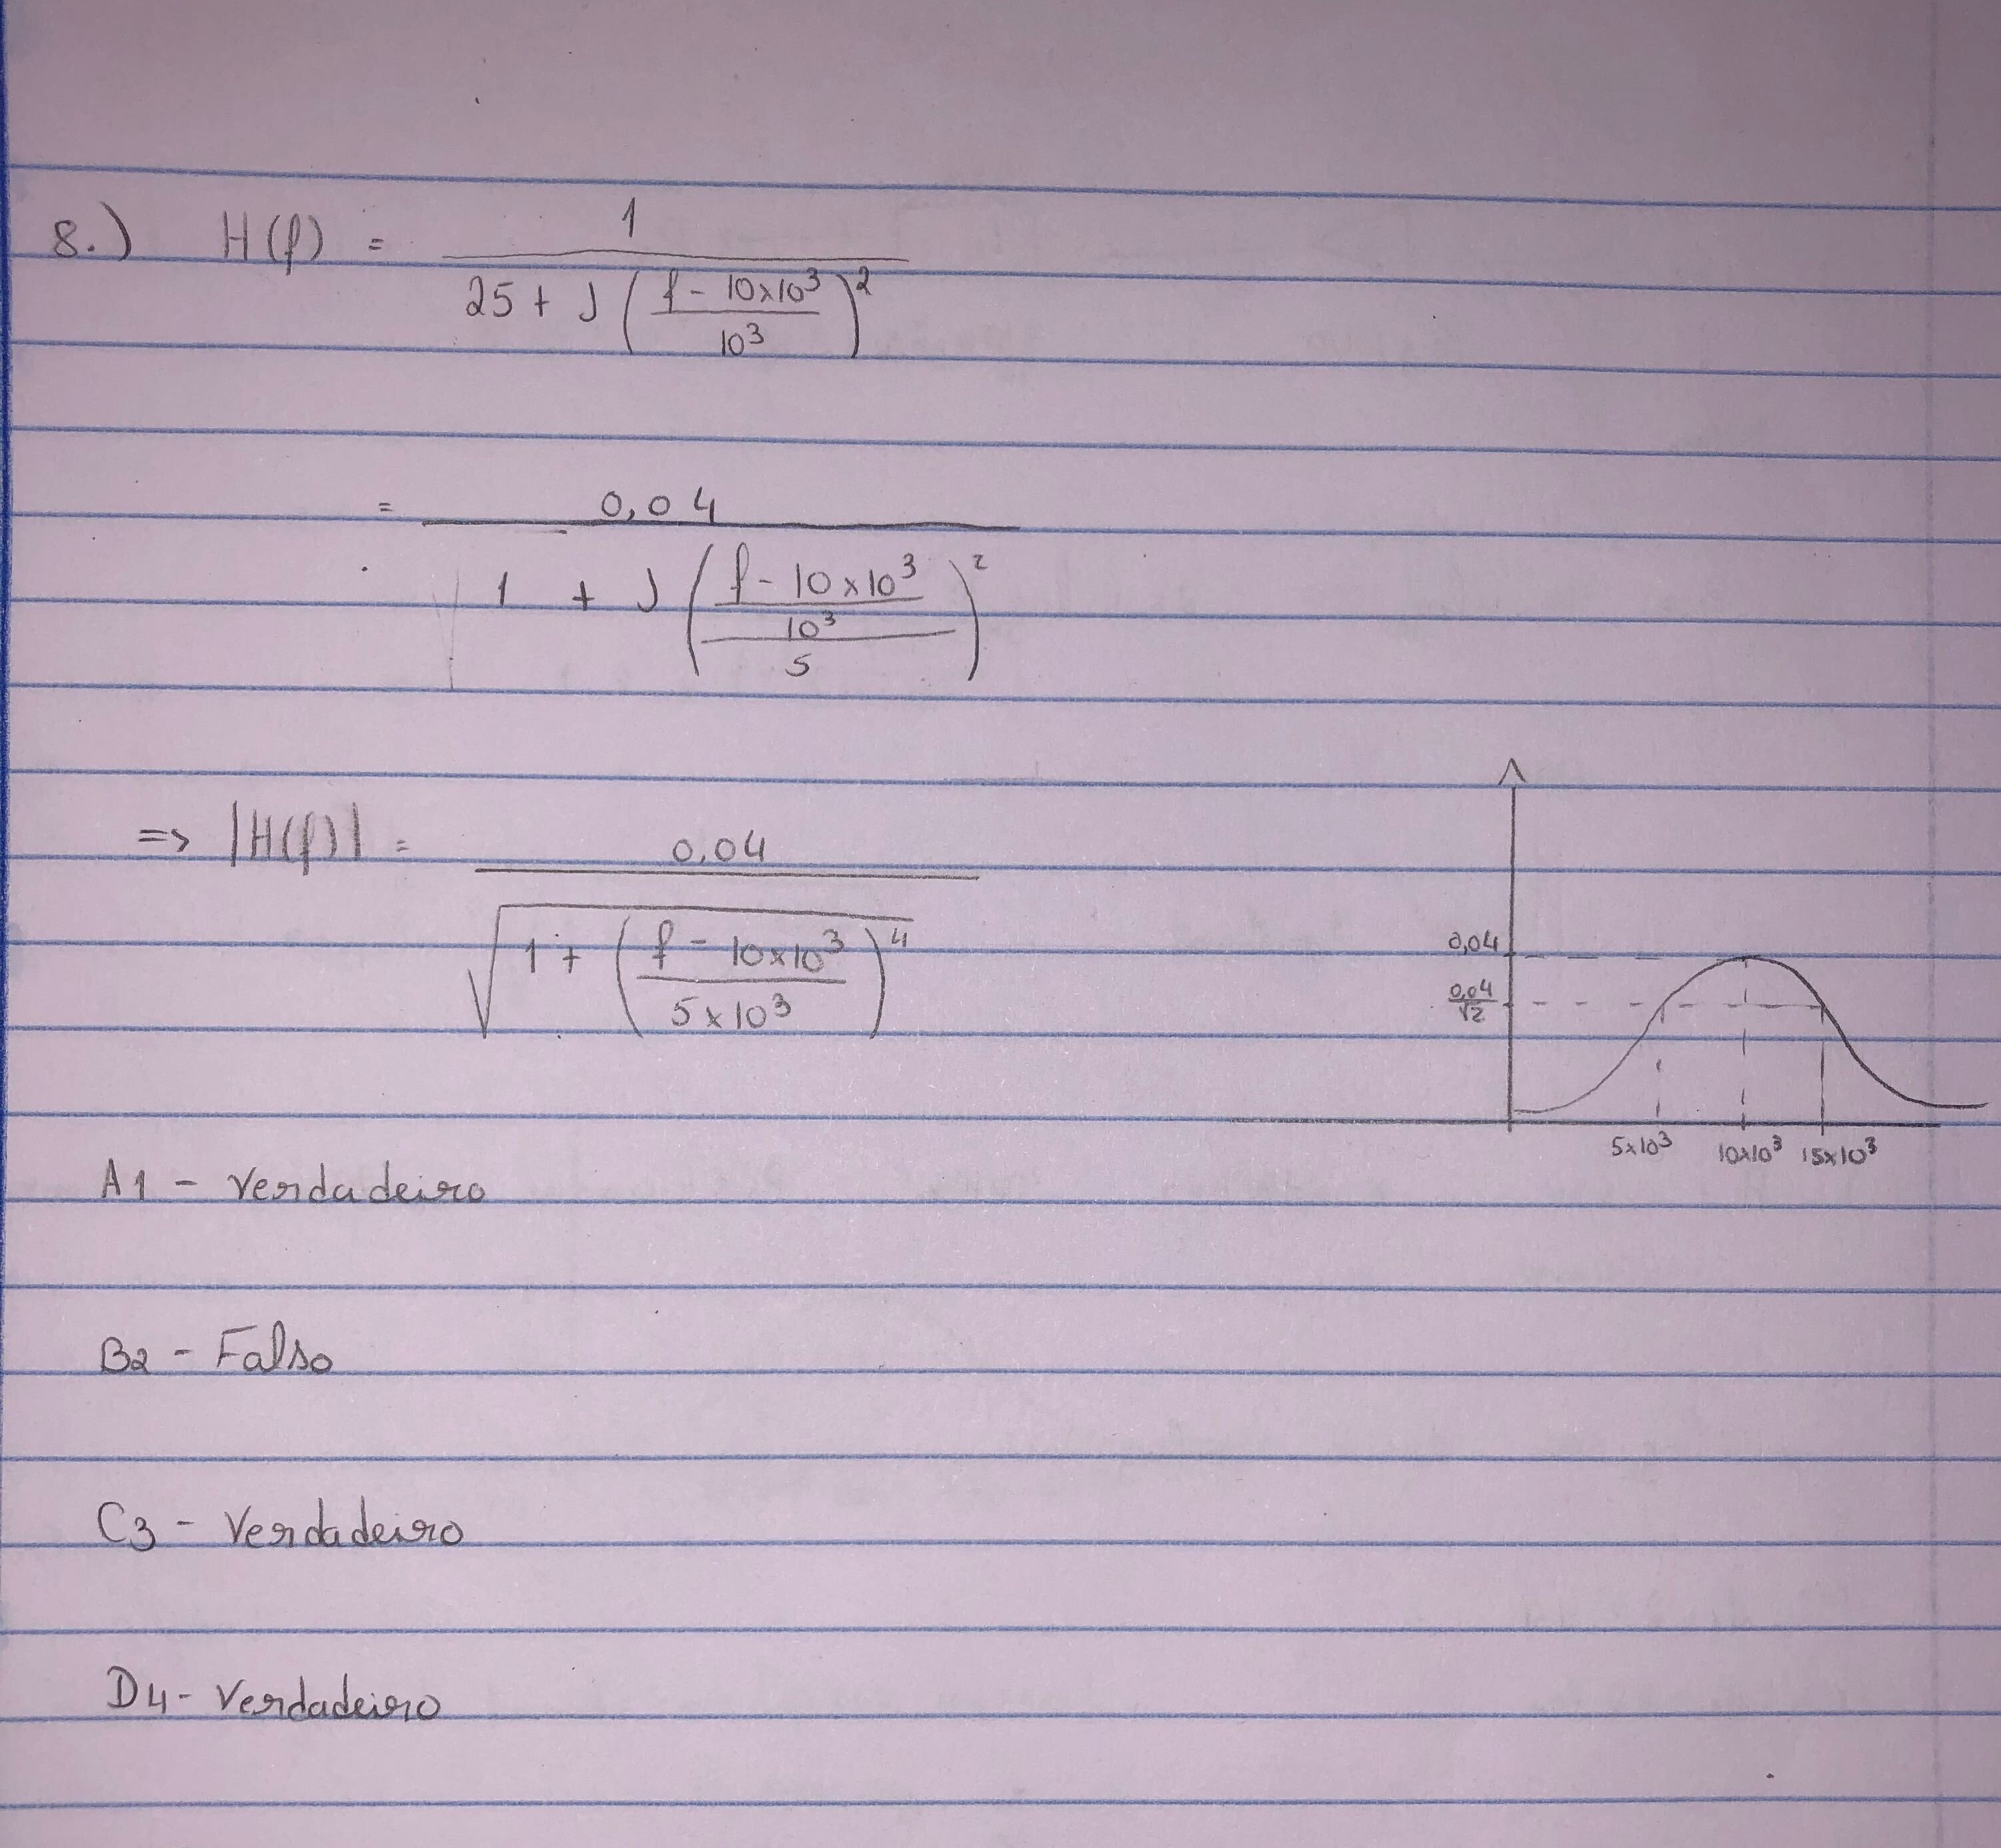 8.) H(f) = 1 / (25 + J ((f - 10x10³) / 10³)²)
= 0,04 / (1 + J (((f - 10x10³) / 10³) / 5)²)
=> |H(f)| = 0,04 / √(1 + ((f - 10x10³) / (5x10³))⁴)
0,04
0,04/√2
5x10³ 10x10³ 15x10³
A1 - Verdadeiro
B2 - Falso
C3 - Verdadeiro
D4 - Verdadeiro